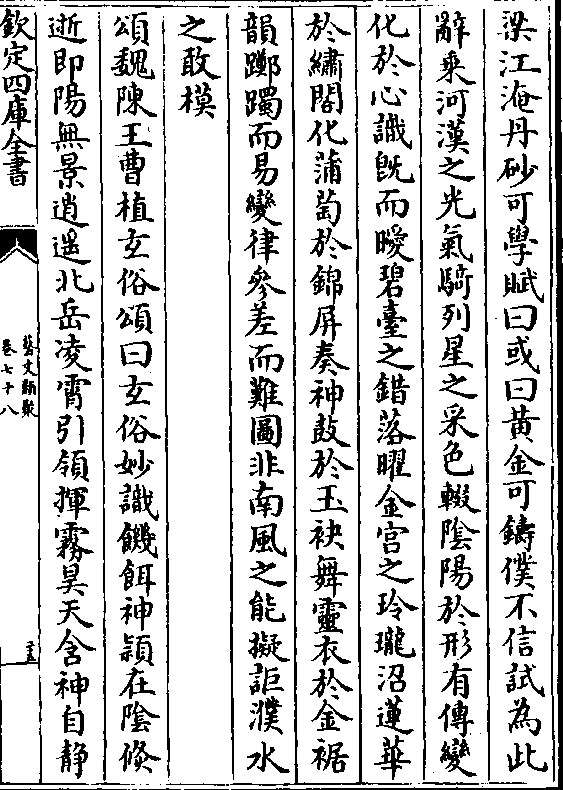 梁江淹丹砂可學賦曰或曰黃金可鑄僕不信試為此
辭乘河漢之光氣騎列星之采色輟陰陽於形有傳變
化於心識旣而曖碧臺之錯落曜金宮之玲瓏沼蓮華
於繡閣化蒲萄於錦屏奏神鼓於玉袂舞靈衣於金裾
韻躑躅而易變律參差而難圖非南風之能擬詎濮水
之敢模
頌魏陳王曹植玄俗頌曰玄俗妙識饑餌神頴在陰倐
逝即陽無景逍遥北岳凌霄引領揮霧昊天含神自静
欽定四庫全書
藝文類聚
卷七十八